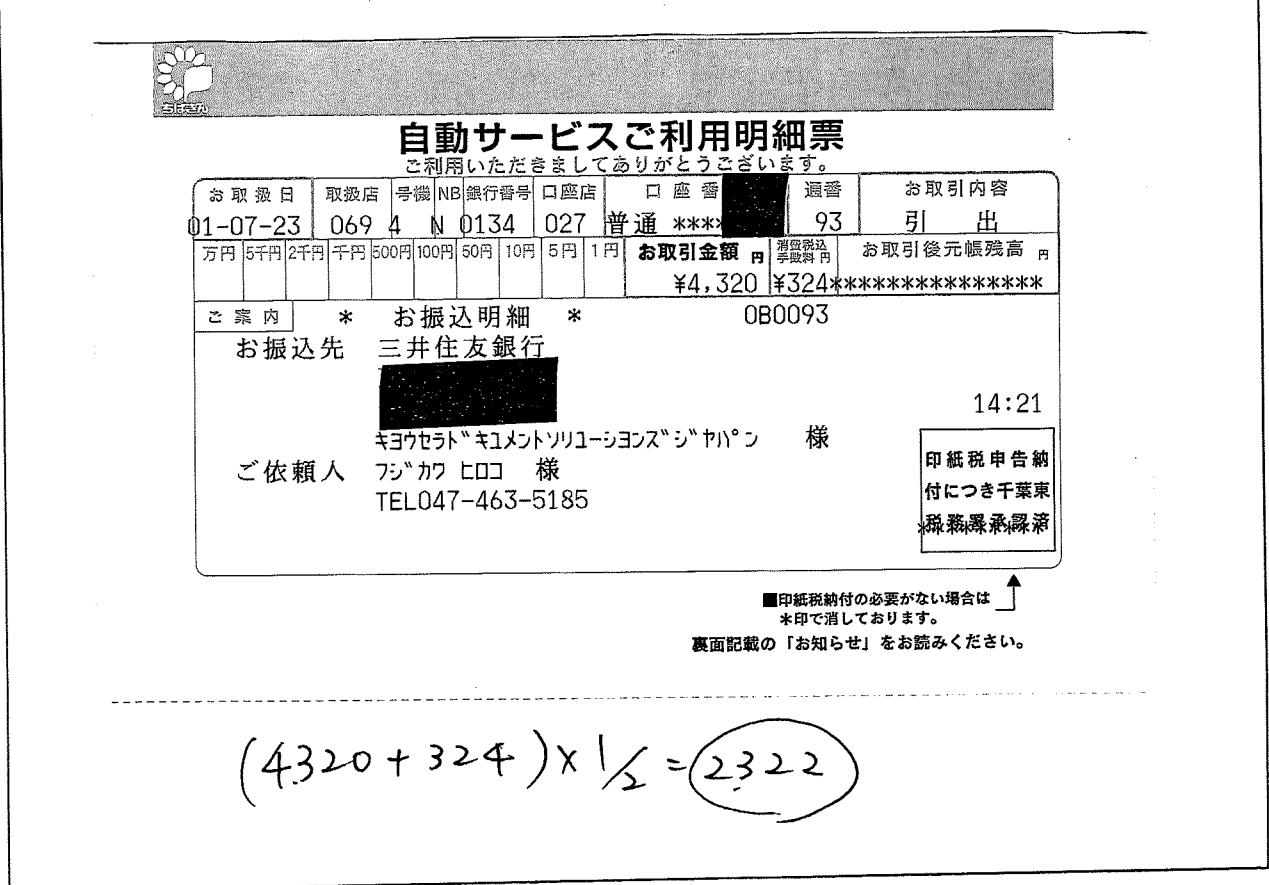 ちばぎん
自動サービスご利用明細票
ご利用いただきましてありがとうございます。
お取扱日 取扱店 号機 NB 銀行番号 口座店 口座番 通番 お取引内容
01-07-23 069 4 N 0134 027 普通 **** 93 引出
万円 5千円 2千円 千円 500円 100円 50円 10円 5円 1円 お取引金額 円 消費税込手数料 円 お取引後元帳残高 円
¥4,320 ¥324**************
ご案内 * お振込明細 * 0B0093
お振込先 三井住友銀行
14:21
キヨウセラド゛キユメントソリユーシヨンズ゛ジ゛ヤハ゜ン 様
ご依頼人 フジ゛カワ ヒロコ 様
TEL047-463-5185
印紙税申告納
付につき千葉東
税務署承認済
■印紙税納付の必要がない場合は
*印で消しております。
裏面記載の「お知らせ」をお読みください。
(4,320+324)×1/2=2,322